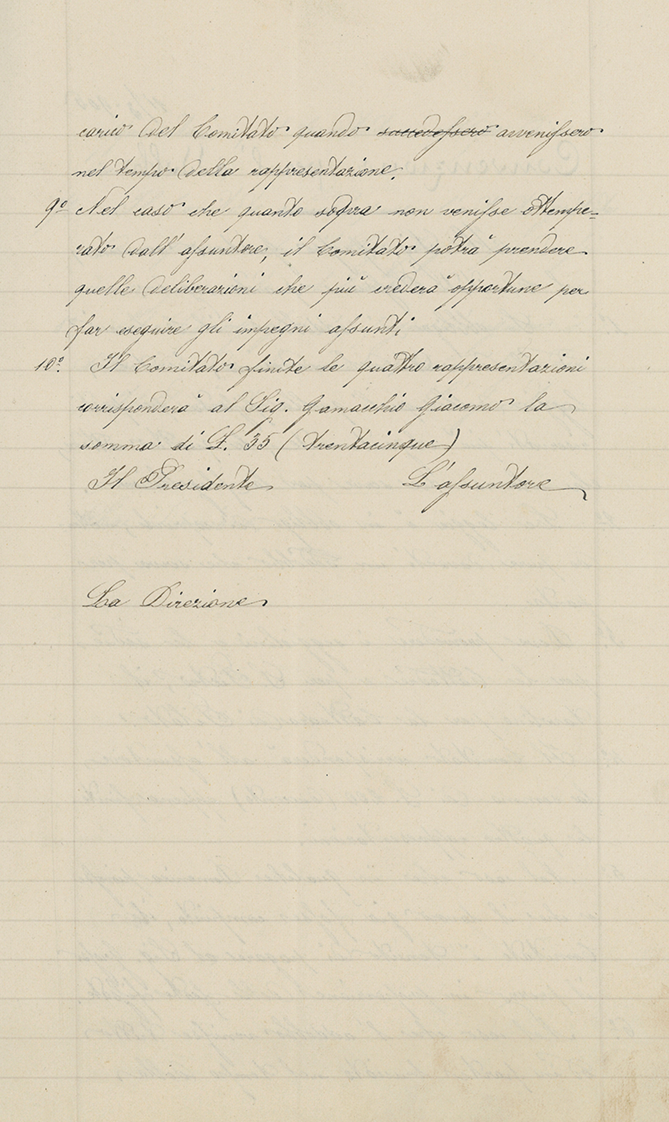 carico del Comitato quando succedessero avvenissero
nel tempo della rappresentazione.
9º Nel caso che quanto sopra non venisse ottempe=
rato dall'assuntore, il Comitato potrà prendere
quelle deliberazioni che più crederà opportune per
far eseguire gli impegni assunti
10º. Il Comitato finite le quattro rappresentazioni
corrisponderà al Sig. Gamacchio Giacomo la
somma di L. 35 (trentacinque)
Il Presidente L'assuntore
La Direzione